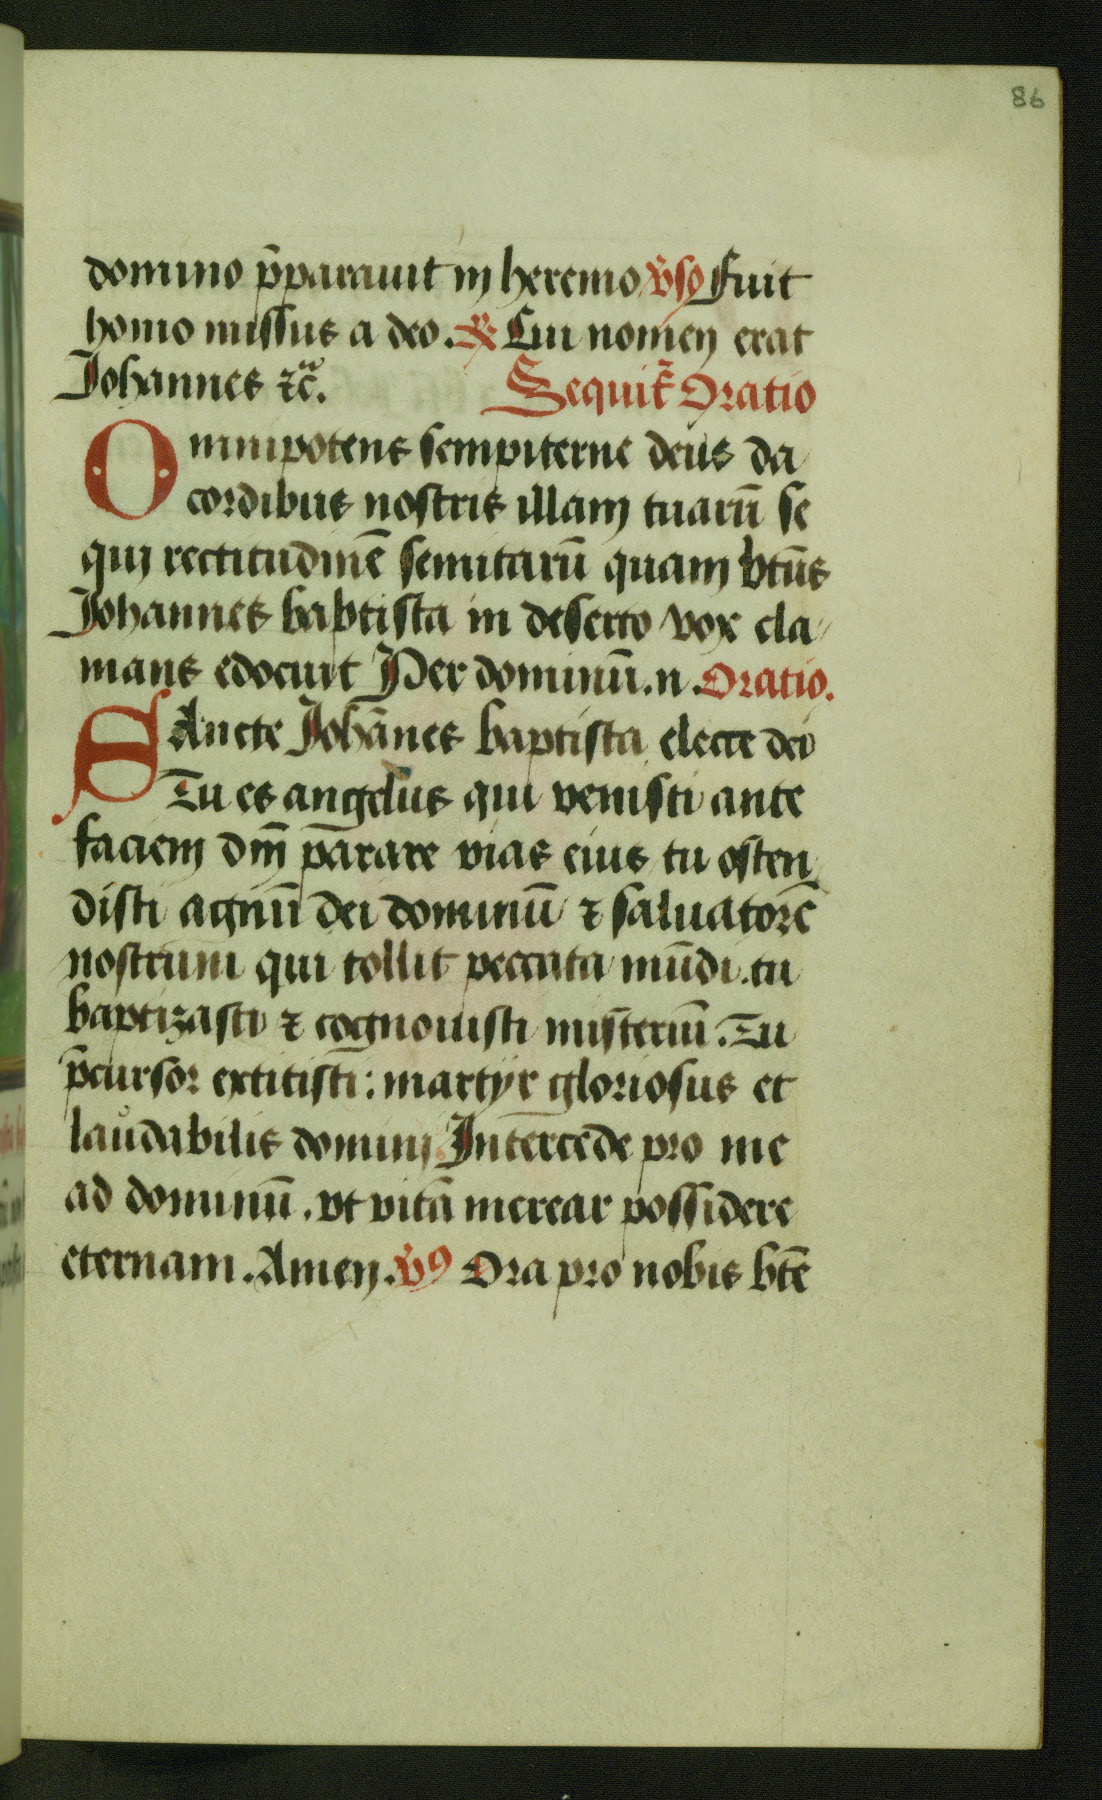 86
domino p̄parauit in heremo v̄so Fuit
homo missus a deo. ℟ Cui nomen erat
Johannes ⁊c̄. Sequit̄ Oratio
Omnipotens sempiterne deus da
cordibus nostris illam tuarū se
qui rectitudinē semitarū quam bt̄us
Johannes babtista in deserto vox cla
mans edocuit Per dominū.n. Oratio.
SAncte Johānes baptista electe dei
Tu es angelus qui venisti ante
faciem dnī p̄arare vias eius tu osten
disti agnū dei dominū ⁊ saluatorē
nostrum qui tollit peccata mūdi. tu
baptizasti ⁊ cognouisti mist̄eriū. Tu
p̄cursor extitisti: martyr gloriosus et
laudabilis domini Intercede pro me
ad dominū. vt vitā merear possidere
eternam. Amen. v̄9 Ora pro nobis bt̄e